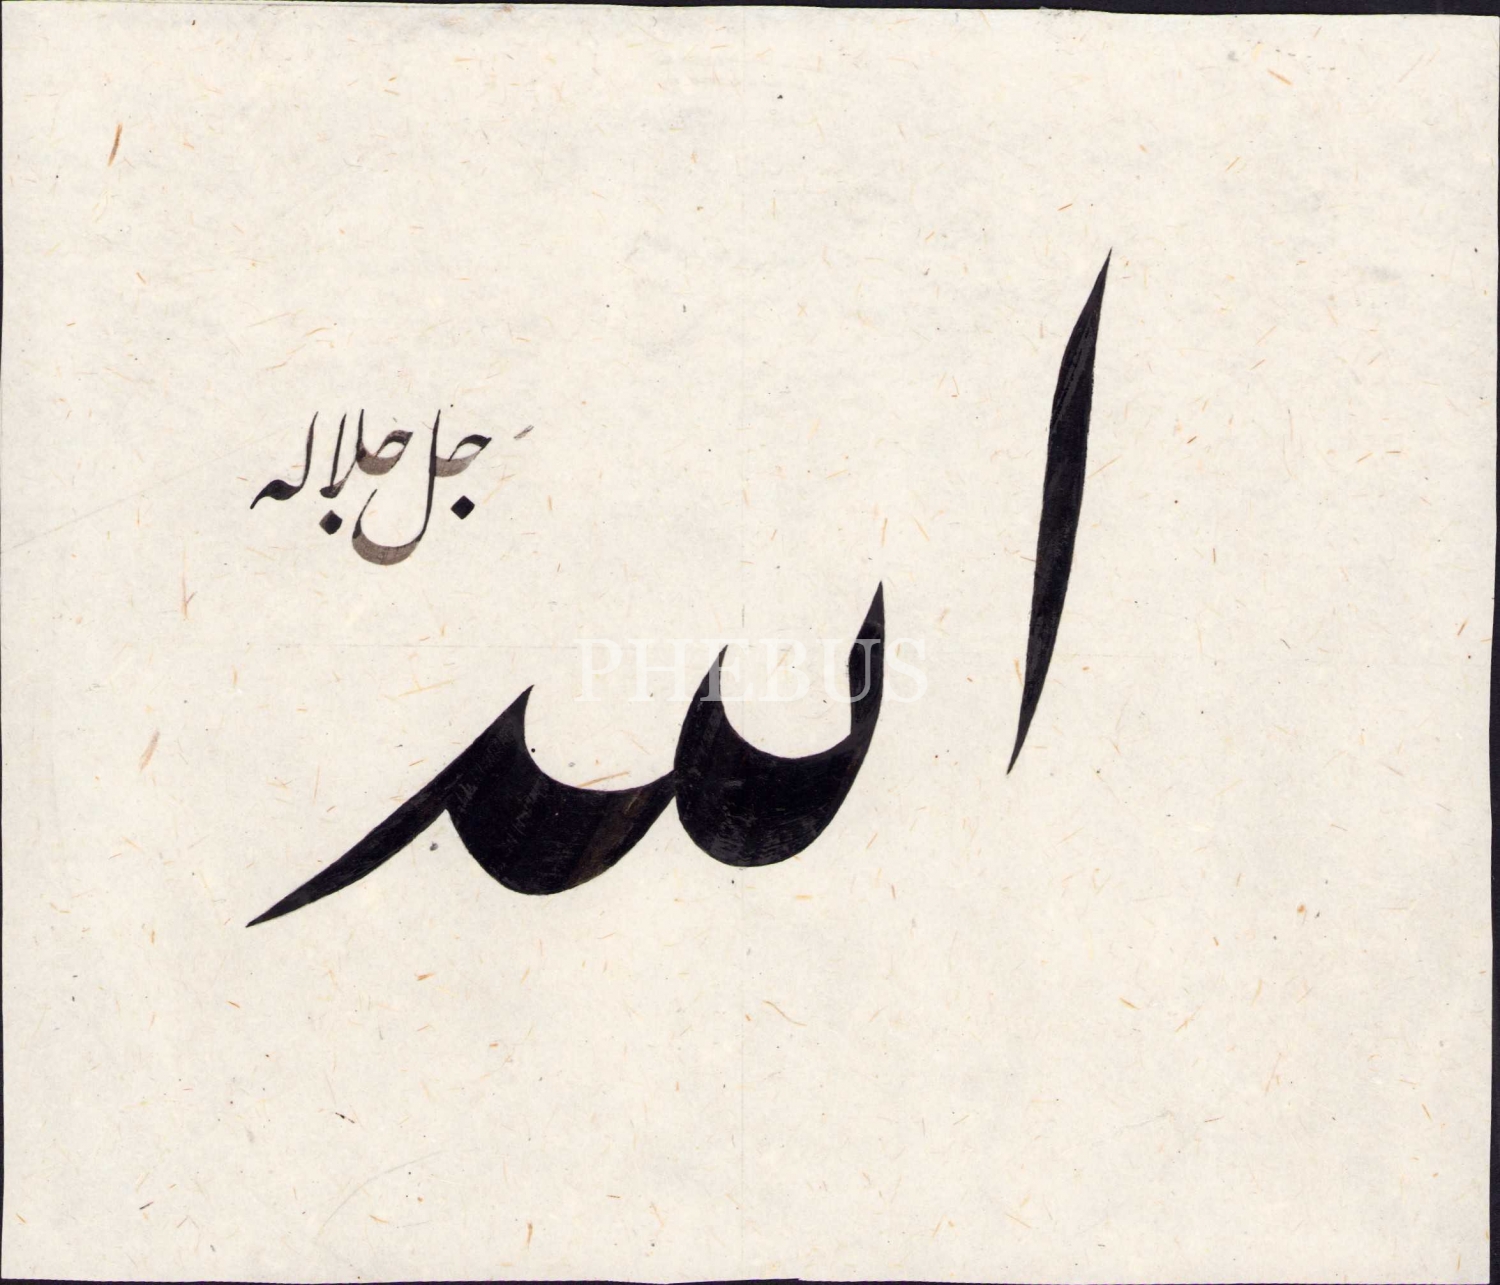 الله
جل جلاله
PHEBUS